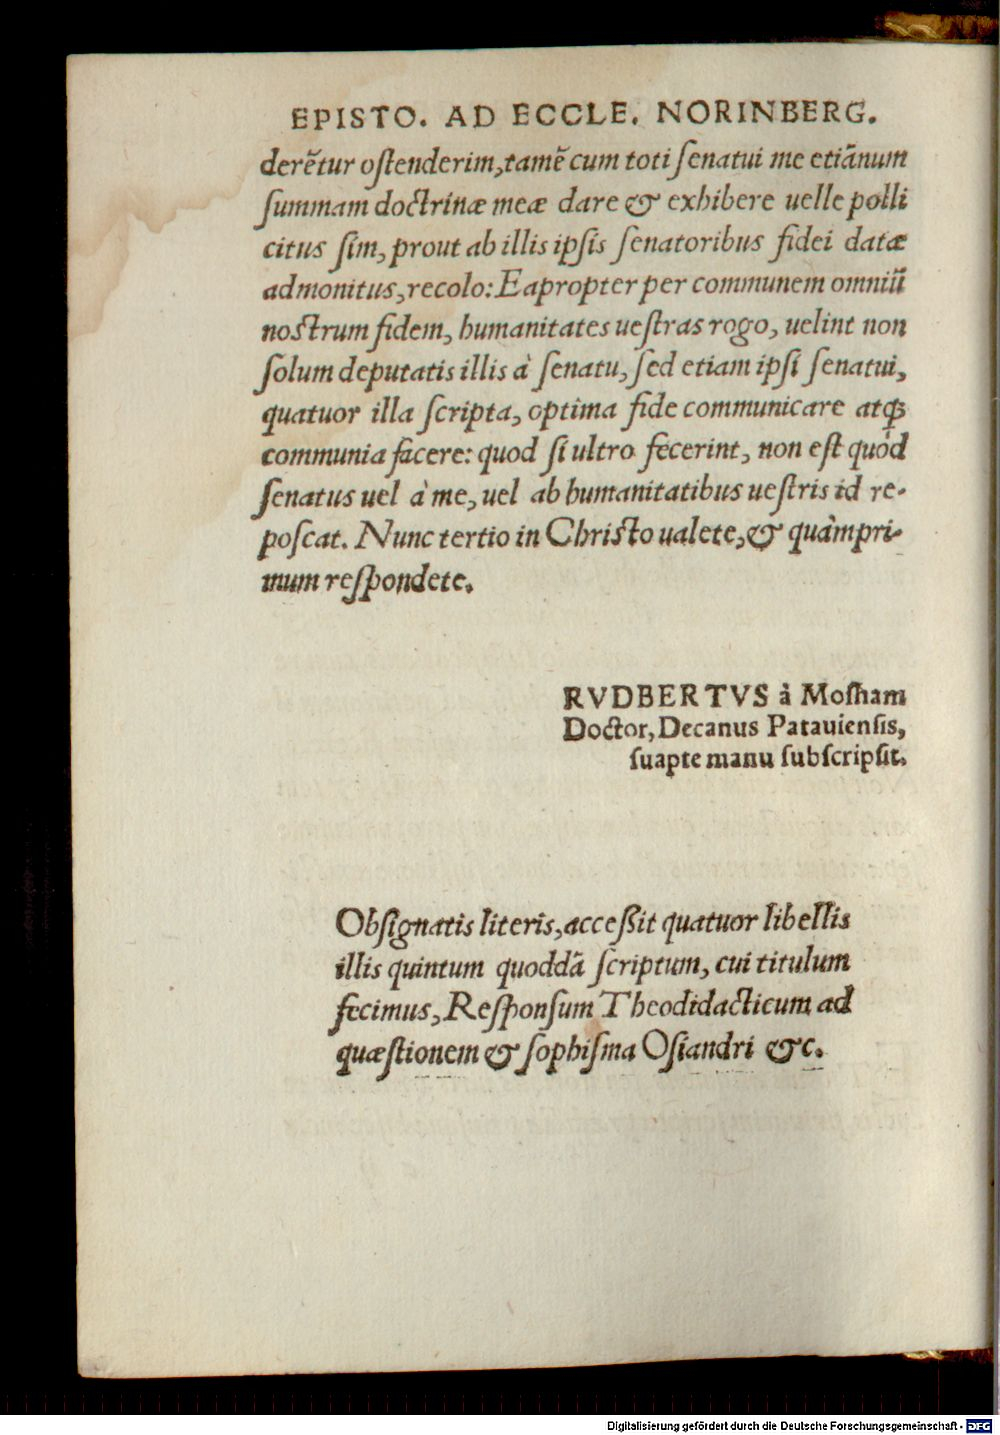 EPISTO. AD ECCLE. NORINBERG.
derẽtur oſtenderim, tamẽ cum toti ſenatui me etiãnum
ſummam doctrinæ meæ dare & exhibere uelle polli
citus ſim, prout ab illis ipſis ſenatoribus fidei datæ
admonitus, recolo: Eapropter per communem omniũ
noſtrum fidem, humanitates ueſtras rogo, uelint non
ſolum deputatis illis à ſenatu, ſed etiam ipſi ſenatui,
quatuor illa ſcripta, optima fide communicare atqꝫ
communia facere: quod ſi ultro fecerint, non eſt quòd
ſenatus uel à me, uel ab humanitatibus ueſtris id re-
poſcat. Nunc tertio in Chriſto ualete, & quàmpri-
mum reſpondete.
RVDBERTVS à Moſham
Doctor, Decanus Patauienſis,
ſuapte manu ſubſcripſit.
Obſignatis literis, acceßit quatuor libellis
illis quintum quoddã ſcriptum, cui titulum
fecimus, Reſponſum Theodidacticum ad
quæſtionem & ſophiſma Oſiandri &c.
Digitalisierung gefördert durch die Deutsche Forschungsgemeinschaft - DFG